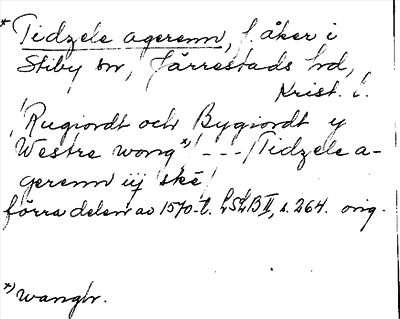 * Tidzele agerenn, f. åker i
Stiby sn, Järrestads hd,
Krist. l.
"Rugiordt och Bygiordt y
Westre wong *) --- / Tidzele a-
gerenn iij ske"
förra delen av 1570-t. LSLB II, s. 264. orig.
*) wangh.